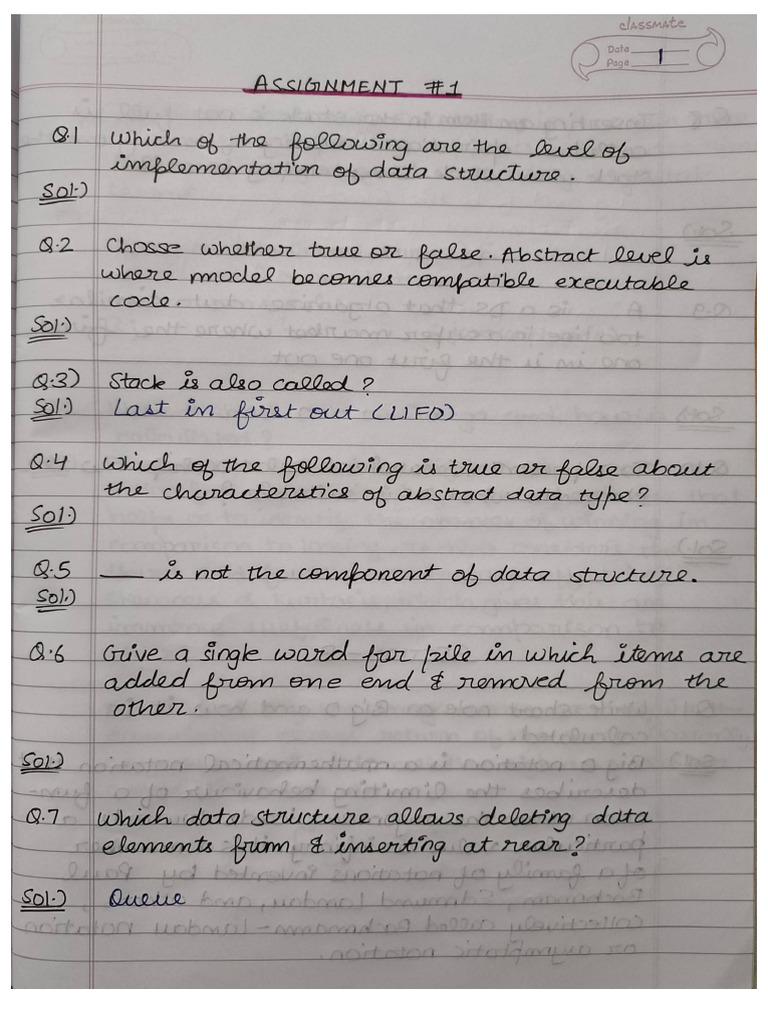 classmate
Date
Page 1
ASSIGNMENT #1
Q.1 Which of the following are the level of
implementation of data structure.
Sol:)
Q.2 Chosse whether true or false. Abstract level is
where model becomes compatible executable
code.
Sol:)
Q.3) Stack is also called?
Sol:) Last in first out (LIFO)
Q.4 Which of the following is true or false about
the characterstics of abstract data type?
Sol:)
Q.5 ___ is not the component of data structure.
Sol:)
Q.6 Give a single word for pile in which items are
added from one end & removed from the
other.
Sol:)
Q.7 Which data structure allows deleting data
elements from & inserting at rear?
Sol:) Queue